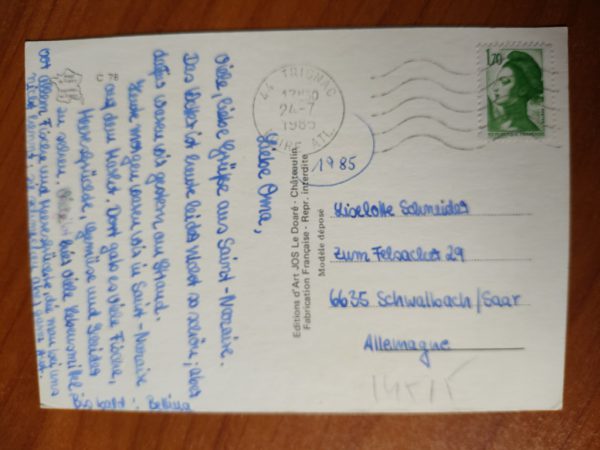 Liebe Oma,
Viele liebe Grüße aus Saint-Nazaire.
Das Wetter ist heute leider nicht so schön, aber
dafür waren wir gestern am Strand.
Heute morgen waren wir in Saint-Nazaire
auf dem Markt. Dort gab es viele Fische,
Meeresfrüchte, Gemüse und Kleider
zu sehen. hier viele
vor allem Fische und Meeresfrüchte, die man bei uns
nicht kennt. aber
Bis bald: Bettina
C 78
Editions d'Art JOS Le Doaré - Châteaulin
Fabrication Française - Repr. interdite
Modèle déposé
44 TRIGNAC
17H30
24-7
1985
LOIRE ATL.
1985
1,70
REPUBLIQUE FRANCAISE
Liselotte Schneider
Zum Felsacker 29
6635 Schwalbach/Saar
Allemagne